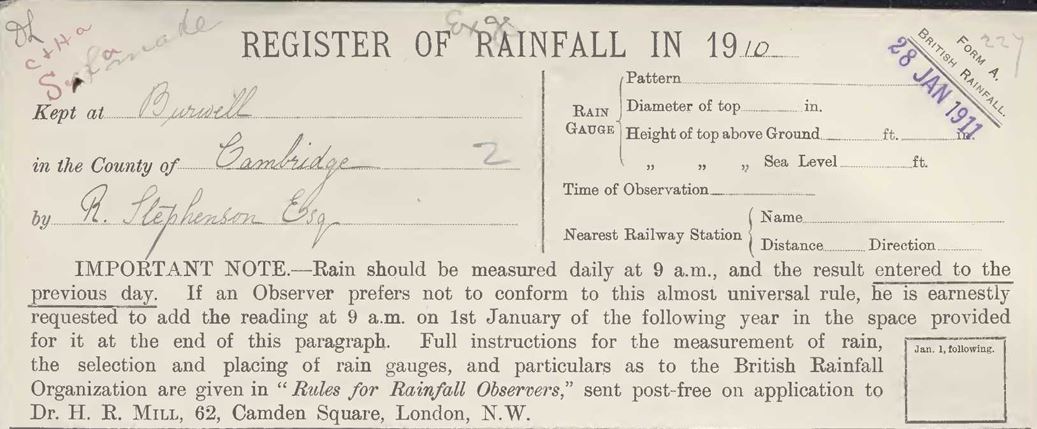 REGISTER OF RAINFALL IN 1910
FORM A.
BRITISH RAINFALL.
28 JAN 1911
227
Kept at Burwell
in the County of Cambridge 2
by R. Stephenson Esq
RAIN GAUGE
Pattern
Diameter of top in.
Height of top above Ground ft. in.
„ „ „ Sea Level ft.
Time of Observation
Nearest Railway Station
Name
Distance Direction
IMPORTANT NOTE.—Rain should be measured daily at 9 a.m., and the result entered to the
previous day. If an Observer prefers not to conform to this almost universal rule, he is earnestly
requested to add the reading at 9 a.m. on 1st January of the following year in the space provided
for it at the end of this paragraph. Full instructions for the measurement of rain,
the selection and placing of rain gauges, and particulars as to the British Rainfall
Organization are given in "Rules for Rainfall Observers," sent post-free on application to
Dr. H. R. MILL, 62, Camden Square, London, N.W.
Jan. 1, following.